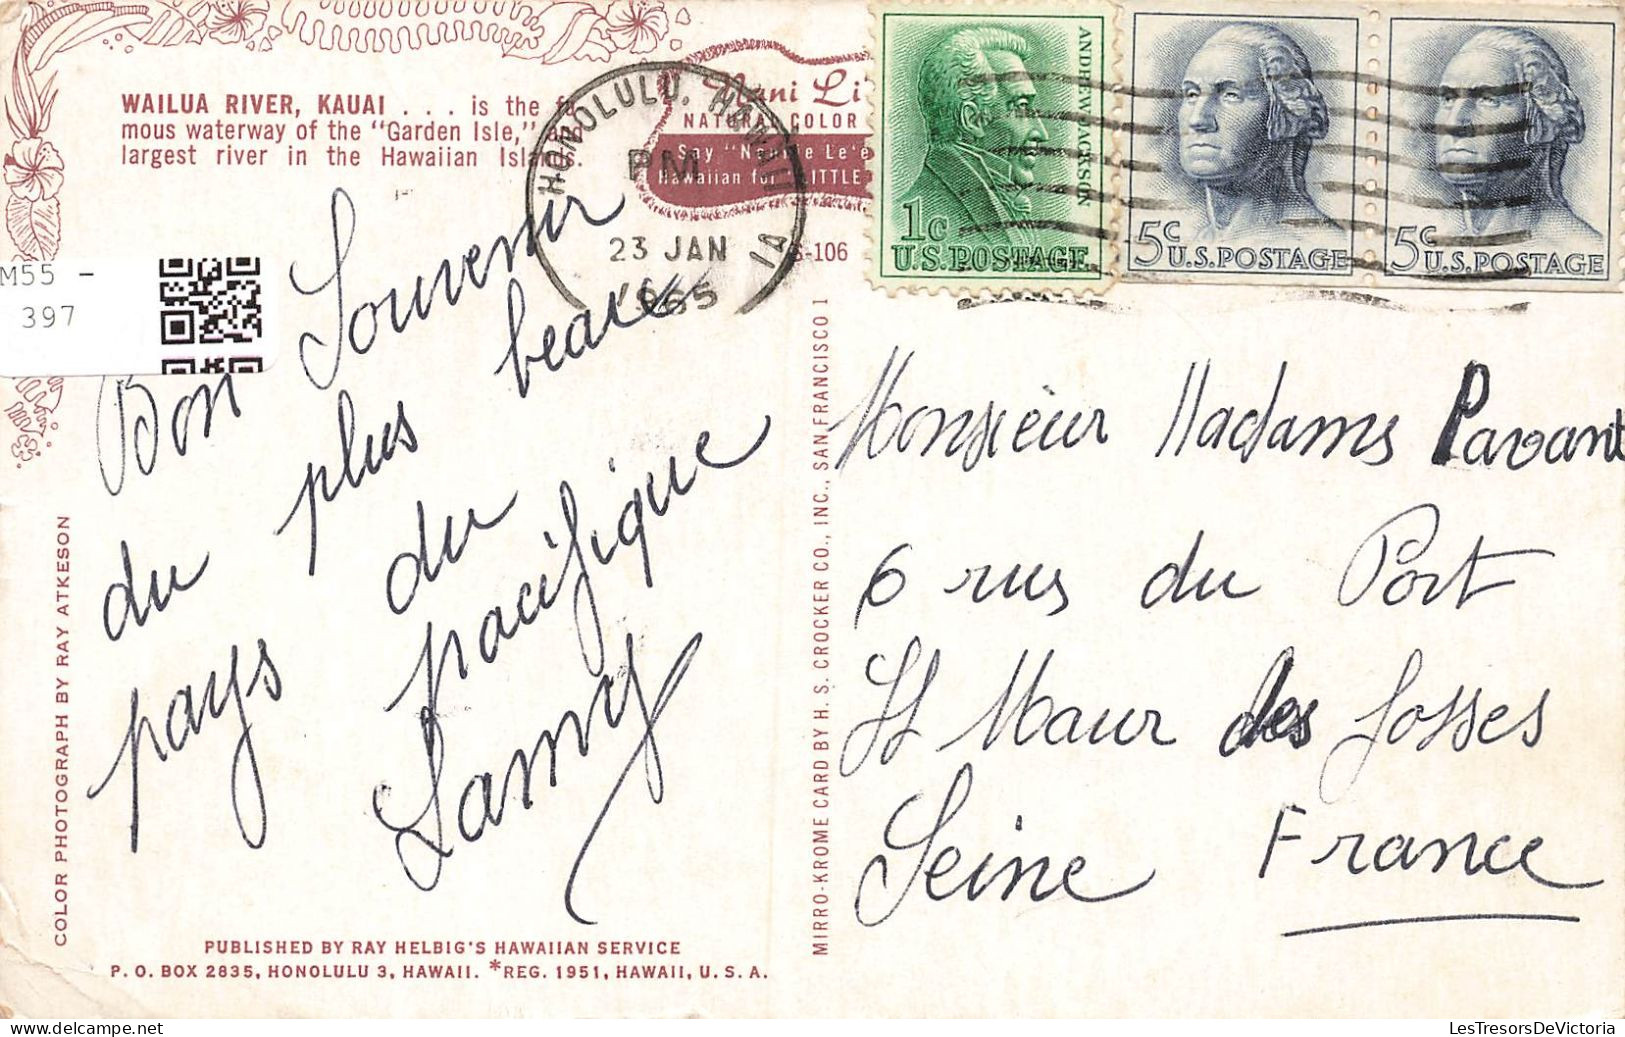 WAILUA RIVER, KAUAI . . . is the fa-
mous waterway of the "Garden Isle," and
largest river in the Hawaiian Islands.
Nani Li'
NATURAL COLOR
Say "Nahnie Le'e
Hawaiian for LITTLE
S-106
HONOLULU, HAWAII
PM
23 JAN
1965
1A
ANDREW JACKSON
1c
U.S. POSTAGE
5c
U.S. POSTAGE
5c
U.S. POSTAGE
M55 -
397
Bon Souvenir
du plus beau
pays du
pacifique
Lamy
Monsieur Madame Pavant
6 rue du Port
St Maur des fosses
Seine France
COLOR PHOTOGRAPH BY RAY ATKESON
MIRRO-KROME CARD BY H. S. CROCKER CO., INC., SAN FRANCISCO 1
PUBLISHED BY RAY HELBIG'S HAWAIIAN SERVICE
P. O. BOX 2835, HONOLULU 3, HAWAII. *REG. 1951, HAWAII, U. S. A.
LesTresorsDeVictoria
www.delcampe.net